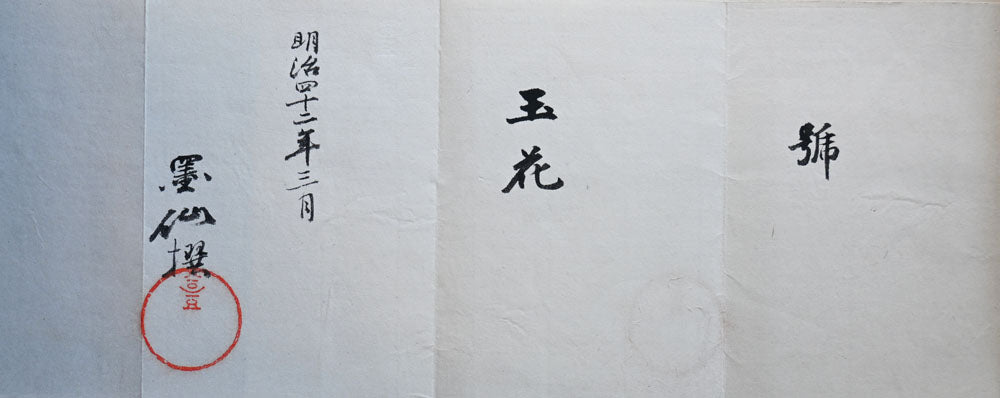 號
玉花
明治四十二年三月
墨仙撰